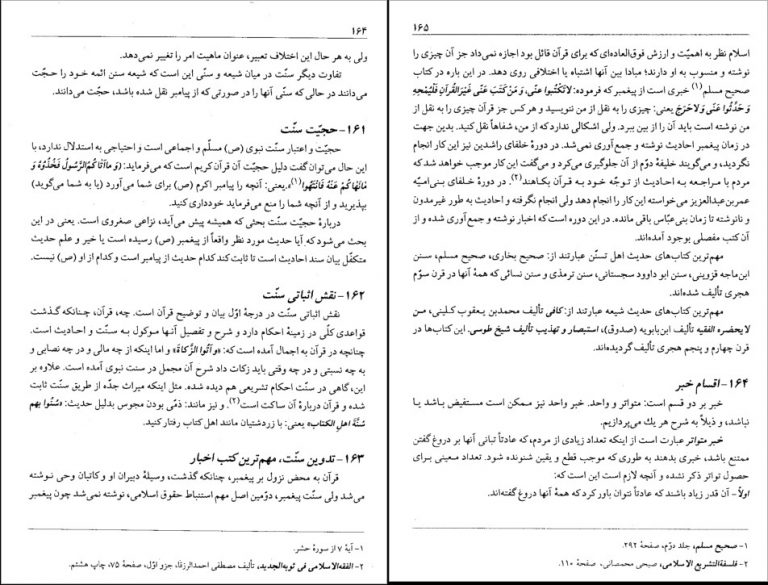 ۱۶۴
ولی به هر حال این اختلاف تعبیر، عنوان ماهیت امر را تغییر نمی‌دهد.
تفاوت دیگر سنّت در میان شیعه و سنّی این است که شیعه سنن ائمه خود را حجّت
می‌دانند در حالی که سنّی آنها را در صورتی که از پیامبر نقل شده باشد، حجّت می‌دانند.
۱۶۱- حجیّت سنّت
حجیّت و اعتبار سنّت نبوی (ص) مسلّم و اجماعی است و احتیاجی به استدلال ندارد، با
این حال می‌توان گفت دلیل حجیّت آن قرآن کریم است که می‌فرماید: (وَ ماآتاکُمُ الرَّسُولُ فَخُذُوهُ وَ
مَانَهَاکُمْ عَنْهُ فَانْتَهُوا)(۱)، یعنی: آنچه را پیامبر اکرم (ص) برای شما می‌آورد (یا به شما می‌گوید)
بپذیرید و از آنچه شما را منع می‌فرماید خودداری کنید.
دربارهٔ حجیّت سنّت بحثی که همیشه پیش می‌آید، نزاعی صغروی است. یعنی در این
بحث می‌شود که آیا حدیث مورد نظر واقعاً از پیغمبر (ص) رسیده است یا خیر و علم حدیث
متکفّل بیان سند احادیث است تا ثابت کند کدام حدیث از پیامبر است و کدام از او (ص) نیست.
۱۶۲- نقش اثباتی سنّت
نقش اثباتی سنّت در درجهٔ اوّل بیان و توضیح قرآن است. چه، قرآن، چنانکه گذشت
قواعدی کلّی در زمینهٔ احکام دارد و شرح و تفصیل آنها موکول به سنّت و احادیث است.
چنانچه در قرآن به اجمال آمده است که: «وَ آتُوا الزَّکاةَ» و اما اینکه از چه مالی و در چه نصابی و
به چه نسبتی و در چه وقتی باید زکات داد شرح آن مجمل در سنت نبوی آمده است. علاوه بر
این، گاهی در سنّت احکام تشریعی هم دیده شده. مثل اینکه میراث جدّه از طریق سنّت ثابت
شده و قرآن دربارهٔ آن ساکت است(۲). و نیز مانند: ذمّی بودن مجوس بدلیل حدیث: «سُنّوا بهم
سُنَّةَ اهلِ الکتاب» یعنی: با زردشتیان مانند اهل کتاب رفتار کنید.
۱۶۳- تدوین سنّت، مهم‌ترین کتب اخبار
قرآن به محض نزول بر پیغمبر، چنانکه گذشت، وسیلهٔ دبیران او و کاتبان وحی نوشته
می‌شد ولی سنّت پیغمبر، دوّمین اصل مهم استنباط حقوق اسلامی، نوشته نمی‌شد چون پیغمبر
۱- آیهٔ ۷ از سورهٔ حشر.
۲- الفقه‌الاسلامی فی ثوبه‌الجدید، تألیف مصطفی احمدالزرقا، جزو اوّل، صفحهٔ ۷۵، چاپ هشتم.
۱۶۵
اسلام نظر به اهمیّت و ارزش فوق‌العاده‌ای که برای قرآن قائل بود اجازه نمی‌داد جز آن چیزی را
نوشته و منسوب به او دارند؛ مبادا بین آنها اشتباه یا اختلافی روی دهد. در این باره در کتاب
صحیح مسلم(۱) خبری است از پیغمبر که فرموده: لاتَکتُبُوا عنّی، وَ مَنْ کَتَبَ عَنّی غَیْرَالقُرآنِ فَلْیَمْحِهِ
وَ حَدّثُوا عَنّی وَ لاحَرَجَ، یعنی: چیزی را به نقل از من ننویسید و هر کس جز قرآن چیزی را به نقل از
من نوشته است باید آن را از بین ببرد. ولی اشکالی ندارد که از من، شفاهاً نقل کنید. بدین جهت
در زمان پیغمبر احادیث نوشته و جمع‌آوری نمی‌شد. در دورهٔ خلفای راشدین نیز این کار انجام
نگردید، و می‌گویند خلیفهٔ دوّم از آن جلوگیری می‌کرد و می‌گفت این کار موجب خواهد شد که
مردم با مراجعه به احادیث از توجّه خود به قرآن بکاهند(۲). در دورهٔ خلفای بنی‌امیّه
عمربن‌عبدالعزیز می‌خواسته این کار را انجام دهد ولی انجام نگرفته و احادیث به طور غیرمدون
و نانوشته تا زمان بنی‌عبّاس باقی مانده. در این دوره است که اخبار نوشته و جمع‌آوری شده و از
آن کتب مفصلی بوجود آمده‌اند.
مهم‌ترین کتاب‌های حدیث اهل تسنّن عبارتند از: صحیح بخاری، صحیح مسلم، سنن
ابن‌ماجه قزوینی، سنن ابو داوود سجستانی، سنن ترمذی و سنن نسائی که همهٔ آنها در قرن سوّم
هجری تألیف شده‌اند.
مهم‌ترین کتاب‌های حدیث شیعه عبارتند از: کافی تألیف محمدبن یعقوب کلینی، من
لایحضره الفقیه تألیف ابن‌بابویه (صدوق)، استبصار و تهذیب تألیف شیخ طوسی. این کتاب‌ها در
قرن چهارم و پنجم هجری تألیف گردیده‌اند.
۱۶۴- اقسام خبر
خبر بر دو قسم است: متواتر و واحد. خبر واحد نیز ممکن است مستفیض باشد یا
نباشد، و ذیلاً به شرح هر یك می‌پردازیم.
خبر متواتر عبارت است از اینکه تعداد زیادی از مردم، که عادتاً تبانی آنها بر دروغ گفتن
ممتنع باشد، خبری بدهند به طوری که موجب قطع و یقین شنونده شود. تعداد معینی برای
حصول تواتر ذکر نشده و آنچه لازم است این است که:
اولاً- آن قدر زیاد باشند که عادتاً نتوان باور کرد که همهٔ آنها دروغ گفته‌اند.
۱- صحیح مسلم، جلد دوّم، صفحهٔ ۲۹۲.
۲- فلسفةالتشریع الاسلامی، صبحی محمصانی، صفحهٔ ۱۱۰.